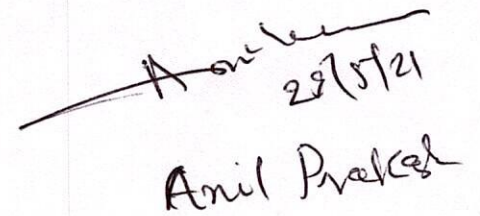 Anil
28/5/21
Anil Prakash